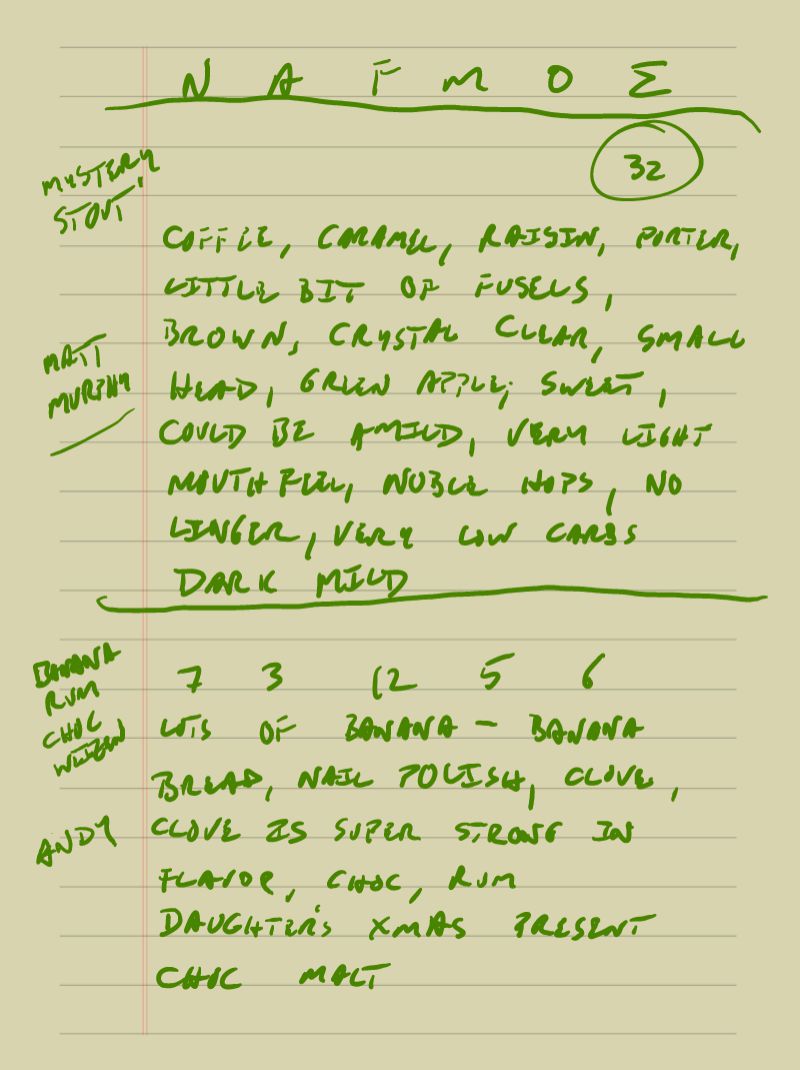 N A F M O E
32
MYSTERY
STOUT
COFFEE, CARAMEL, RAISIN, PORTER,
LITTLE BIT OF FUSELS,
BROWN, CRYSTAL CLEAR, SMALL
MATT
MURPHY
HEAD, GREEN APPLE, SWEET,
COULD BE A MILD, VERY LIGHT
MOUTHFEEL, NOBLE HOPS, NO
LINGER, VERY LOW CARBS
DARK MILD
BANANA
RUM
CHOC
WEIZEN
7 3 12 5 6
LOTS OF BANANA - BANANA
BREAD, NAIL POLISH, CLOVE,
ANDY
CLOVE IS SUPER STRONG IN
FLAVOR, CHOC, RUM
DAUGHTER'S XMAS PRESENT
CHOC MALT